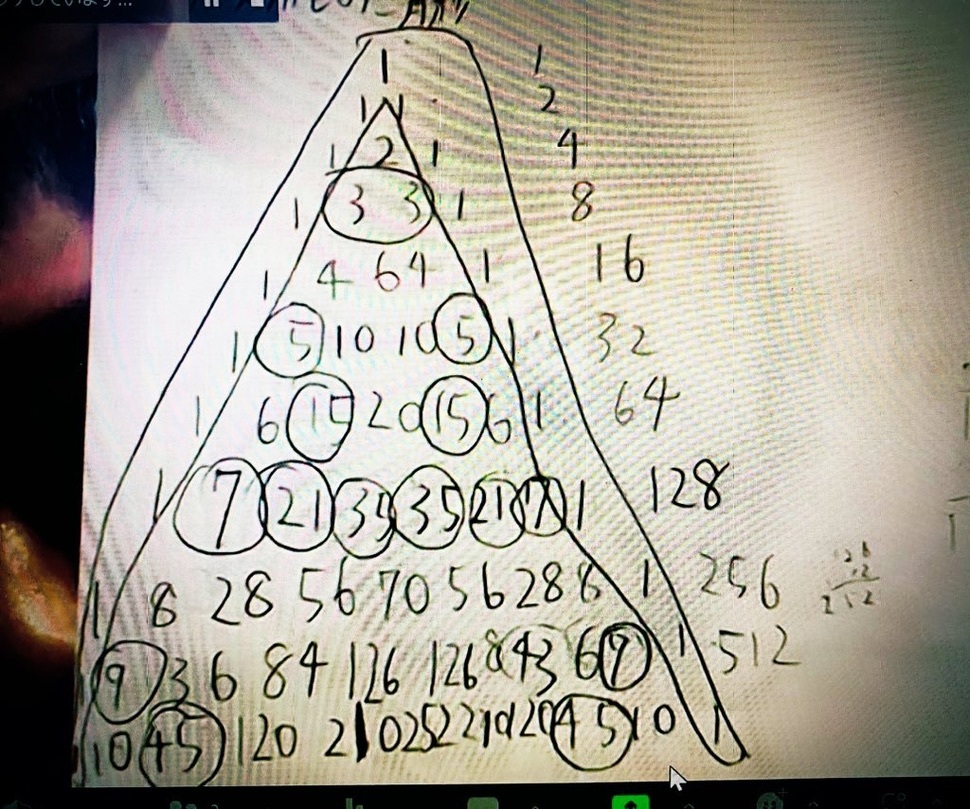 1 1
1 1 2
1 2 1 4
1 3 3 1 8
1 4 6 4 1 16
1 5 10 10 5 1 32
1 6 15 20 15 6 1 64
1 7 21 35 35 21 7 1 128
1 8 28 56 70 56 28 8 1 256
9 36 84 126 126 84 36 9 1 512
10 45 120 210 252 210 120 45 10 1